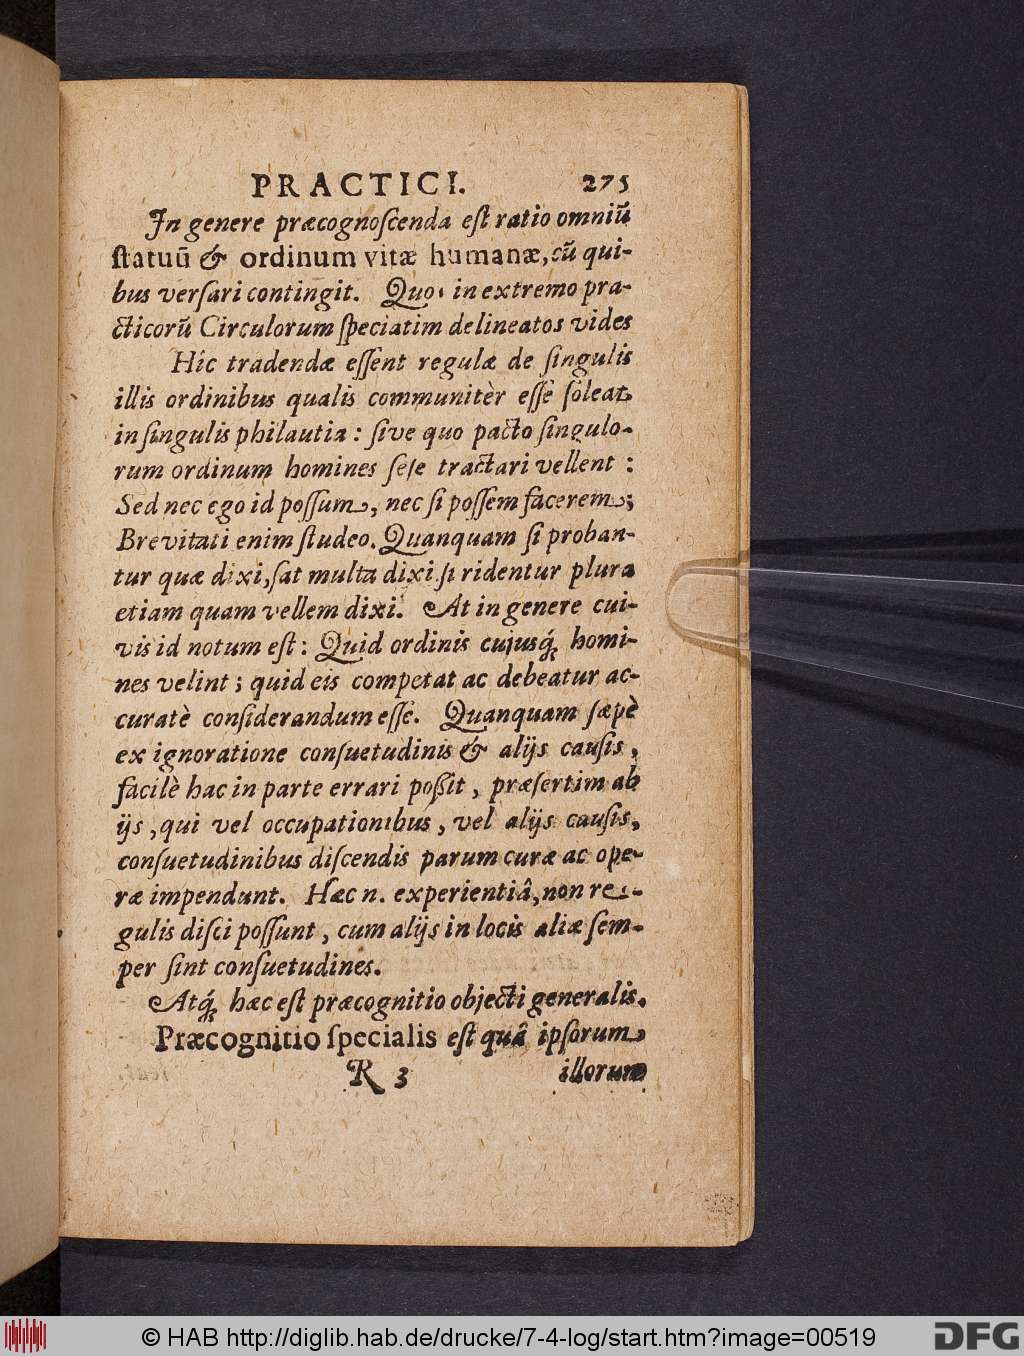 PRACTICI. 275
In genere præcognoscenda est ratio omniũ
ſtatuũ & ordinum vitæ humanæ, cũ qui-
bus verſari contingit. Quo, in extremo pra-
cticorũ Circulorum ſpeciatim delineatos vides
Hic tradendæ eſſent regulæ de ſingulis
illis ordinibus qualis communitèr eſſe ſoleat
in ſingulis philautia : ſive quo pacto ſingulo-
rum ordinum homines ſeſe tractari vellent :
Sed nec ego id poſſum, nec ſi poſſem facerem;
Brevitati enim ſtudeo. Quanquam ſi proban-
tur quæ dixi, ſat multa dixi, ſi ridentur plura
etiam quam vellem dixi. At in genere cui-
vis id notum eſt : Quid ordinis cujusq́ꝫ homi-
nes velint ; quid eis competat ac debeatur ac-
curatè conſiderandum eſſe. Quanquam ſæpè
ex ignoratione conſuetudinis & alijs cauſis,
facilè hac in parte errari poſſit, præſertim ab
ijs, qui vel occupationibus, vel alijs cauſis,
conſuetudinibus diſcendis parum curæ ac ope-
ræ impendunt. Hæc n. experientiâ, non re-
gulis diſci poſſunt, cum alijs in locis aliæ ſem-
per ſint conſuetudines.
Atq́ꝫ hæc eſt præcognitio objecti generalis.
Præcognitio ſpecialis eſt quâ ipſorum
R 3 illorum
© HAB http://diglib.hab.de/drucke/7-4-log/start.htm?image=00519
DFG